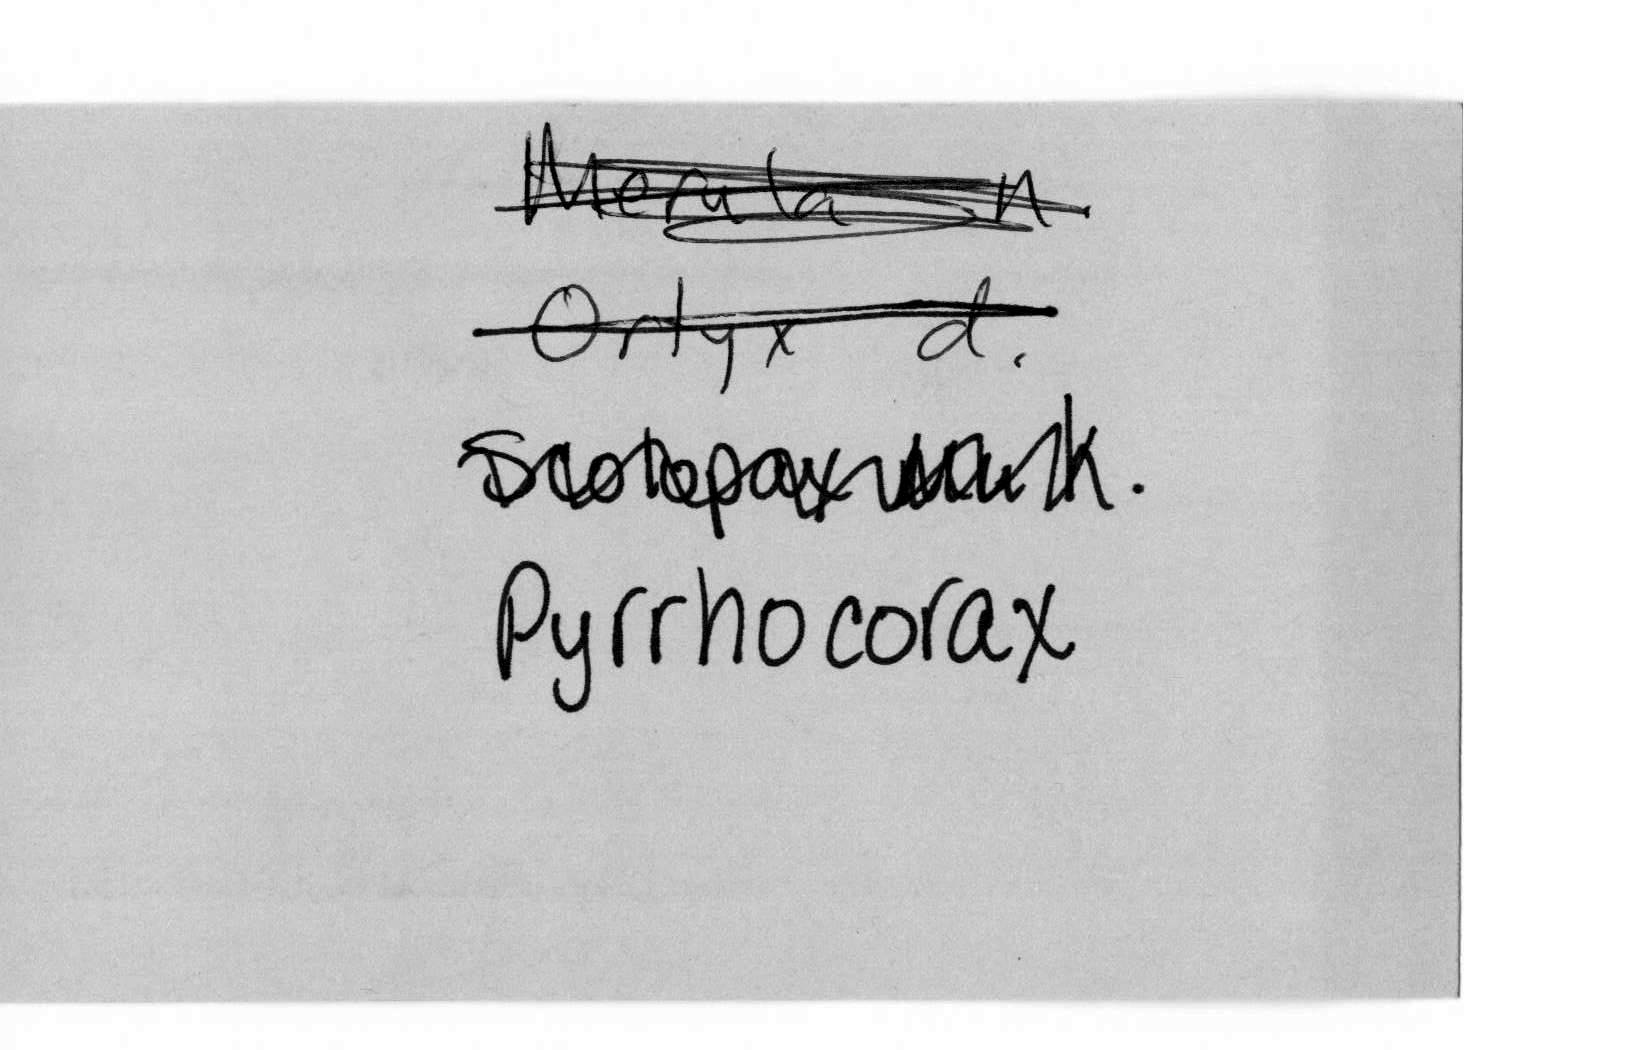 Merula n
Ortyx d.
Scolopax
Pyrrhocorax